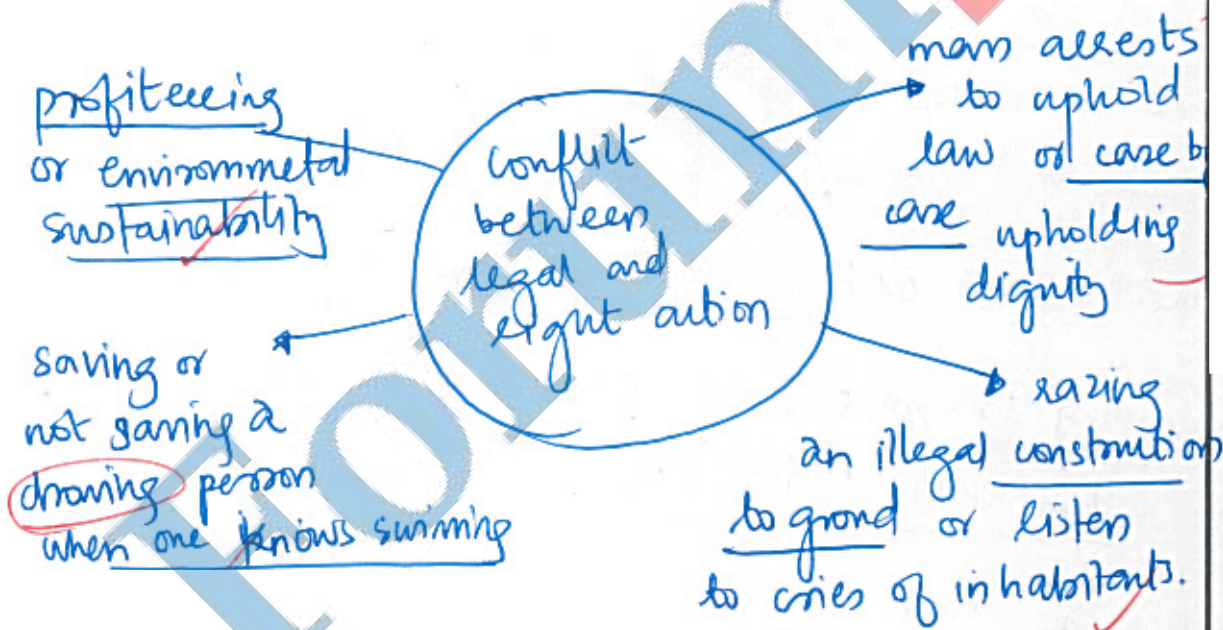 profiteering
or environmetal
sustainability
conflict
between
legal and
right action
mass arrests
to uphold
law or case b
case upholding
dignity
saving or
not saving a
drowing person
when one knows swiming
razing
an illegal construction
to grond or listen
to cries of inhabitants.
Forum